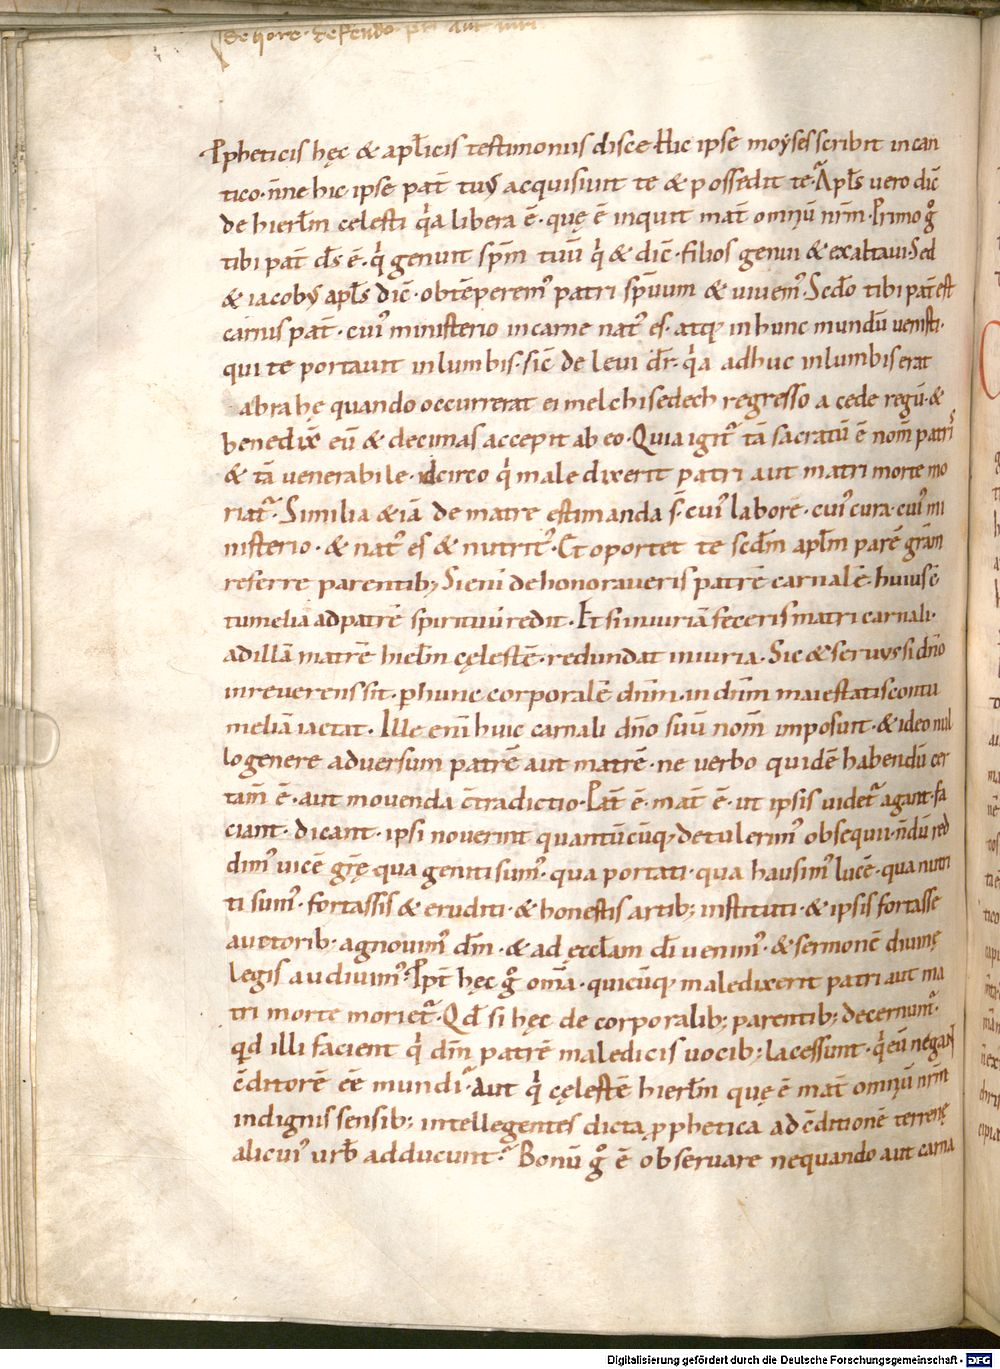 de hore defendo
Ppheticis hęc & apl̄icis testimoniis disce. Hic ipse moyses scribit in can
tico. nn̄e hic ipse pat̄ tuus acquisiuit te & possedit te. Apl̄s vero dic̄
de hierl̄m celesti qa libera ē. quę ē inquit mat̄ omniū nr̄m. Primo g°
tibi pat̄ ds̄ ē. q¹ genuit spm̄ tuū q¹ & dic̄. filios genui & exaltaui. Sed
& iacobus apl̄s dic̄. obtēperem᾿ patri spūum & uiuem᾿. Scd̄o tibi pat̄ est
carnis pat̄. cui᾿ ministerio in carne nat᾿ es. atq; in hunc mundū uenisti.
qui te portauit in lumbis. sic̄ de leui dr̄. qa adhuc in lumbis erat
abrahę quando occurrerat ei melchisedech regresso a cede regū. &
benedix̄ eū & decimas accepit ab eo. Quia igit᾿ tā sacratū ē nom̄ patris
& tā uenerabile. idcirco q¹ male dixerit patri aut matri morte mo
riat᾿. Similia & iā de matre estimanda s̄. cui᾿ labore. cui᾿ cura. cui᾿ mi
nisterio. & nat᾿ es & nutrit᾿. Et oportet te scdm̄ apl̄m parē grām
referre parentib; Si enī dehonoraueris patrē carnalē. huius c̄
tumelia ad patrē spirituū redit. Et si iniuriā feceris matri carnali.
ad illā matrē hierl̄m cęlestē. redundat iniuria. Sic & seruus si dn̄o
inreuerens sit. p hunc corporalē dnm̄. in dnm̄ maiestatis contu
meliā iactat. Ille enī huic carnali dn̄o suū nom̄ imposuit. & ideo nul
lo genere aduersum patrē aut matrē. ne uerbo quidē habendū cer
tam̄ ē. aut mouenda c̄tradictio. Pat̄ ē. mat̄ ē. ut ipsis uidet᾿ agant. fa
ciant. dicant. ipsi nouerint quantūcūq; detulerim᾿ obsequii. ndū red
dim᾿ uicē grę qua geniti sum᾿. qua portati. qua hausim᾿ lucē. qua nutri
ti sum᾿. fortassis & eruditi. & honestis artib; instituti. & ipsis fortasse
auctorib; agnouim᾿ dm̄. & ad ęccl̄am dī uenim᾿. & sermonē diuinę
legis audiuim᾿. Ppt̄ hęc g° omā. quicūq; maledixerit patri aut ma
tri morte moriet᾿. Qd̄ si hęc de corporalib; parentib; decernunt᾿.
qd illi facient q¹ dm̄ patrē maledicis uocib; lacessunt. q¹ eū negant
c̄ditorē eē mundi. Aut q¹ cęlestē hierl̄m quę ē mat̄ omniū nrm̄
indignis sensib; intellegentes dicta pphetica ad c̄ditionē terrenę
alicui᾿ urb̄ adducunt. Bonū g° ē obseruare ne quando aut carna
Digitalisierung gefördert durch die Deutsche Forschungsgemeinschaft - DFG